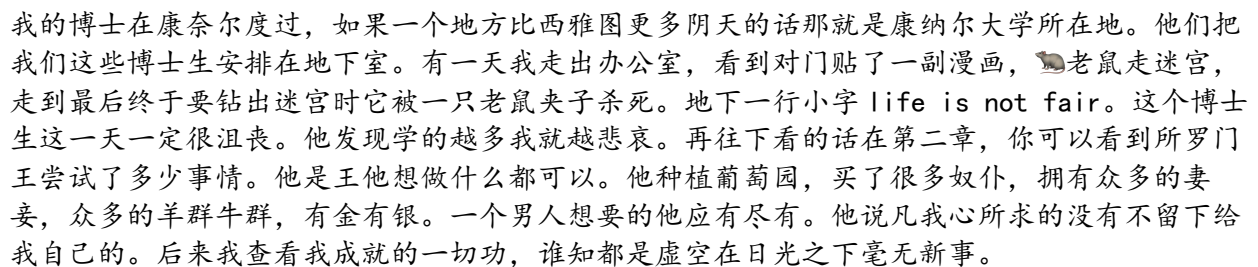 我的博士在康奈尔度过，如果一个地方比西雅图更多阴天的话那就是康纳尔大学所在地。他们把
我们这些博士生安排在地下室。有一天我走出办公室，看到对门贴了一副漫画，🐀老鼠走迷宫，
走到最后终于要钻出迷宫时它被一只老鼠夹子杀死。地下一行小字 life is not fair。这个博士
生这一天一定很沮丧。他发现学的越多我就越悲哀。再往下看的话在第二章，你可以看到所罗门
王尝试了多少事情。他是王他想做什么都可以。他种植葡萄园，买了很多奴仆，拥有众多的妻
妾，众多的羊群牛群，有金有银。一个男人想要的他应有尽有。他说凡我心所求的没有不留下给
我自己的。后来我查看我成就的一切功，谁知都是虚空在日光之下毫无新事。